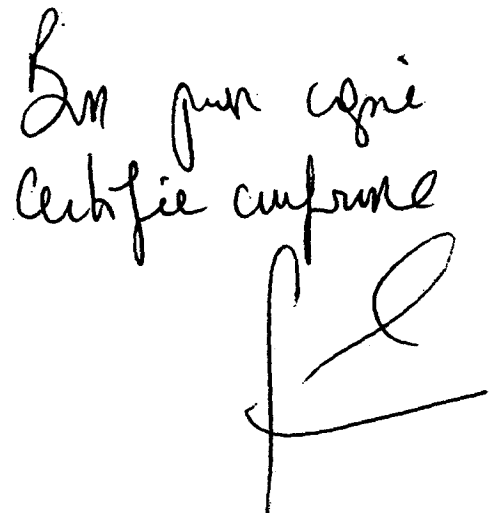 Bon pour copie
Certifie conforme